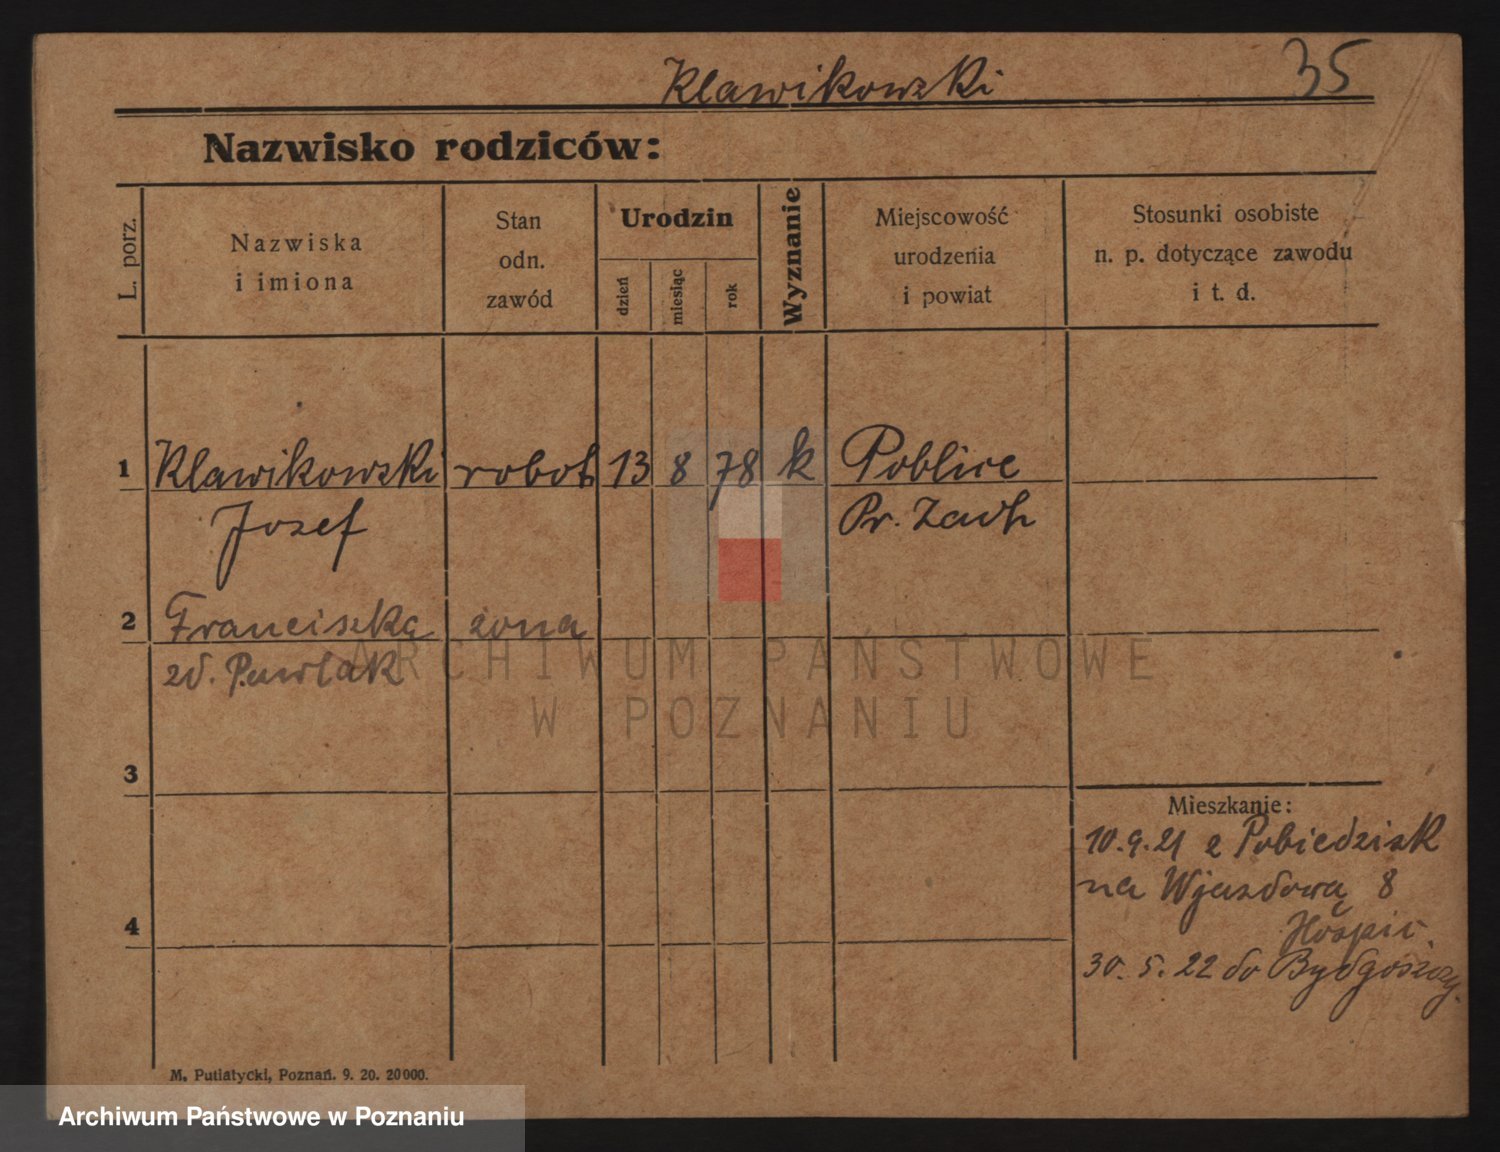 Klawikowski 35
Nazwisko rodziców:
L. porz.
Nazwiska
i imiona
Stan
odn.
zawód
Urodzin
dzień
miesiąc
rok
Wyznanie
Miejscowość
urodzenia
i powiat
Stosunki osobiste
n. p. dotyczące zawodu
i t. d.
1 Klawikowski robot 13 8 78 k Poblice
Jozef Pr. Zach
2 Franciszka żona
zd. Pawlak
ARCHIWUM PAŃSTWOWE
W POZNANIU
3
Mieszkanie:
10.9.21 z Pobiedzisk
na Wjazdową 8
4
Hospic.
30. 5. 22 do Bydgoszczy.
M. Putiatycki, Poznań. 9. 20. 20000.
Archiwum Państwowe w Poznaniu